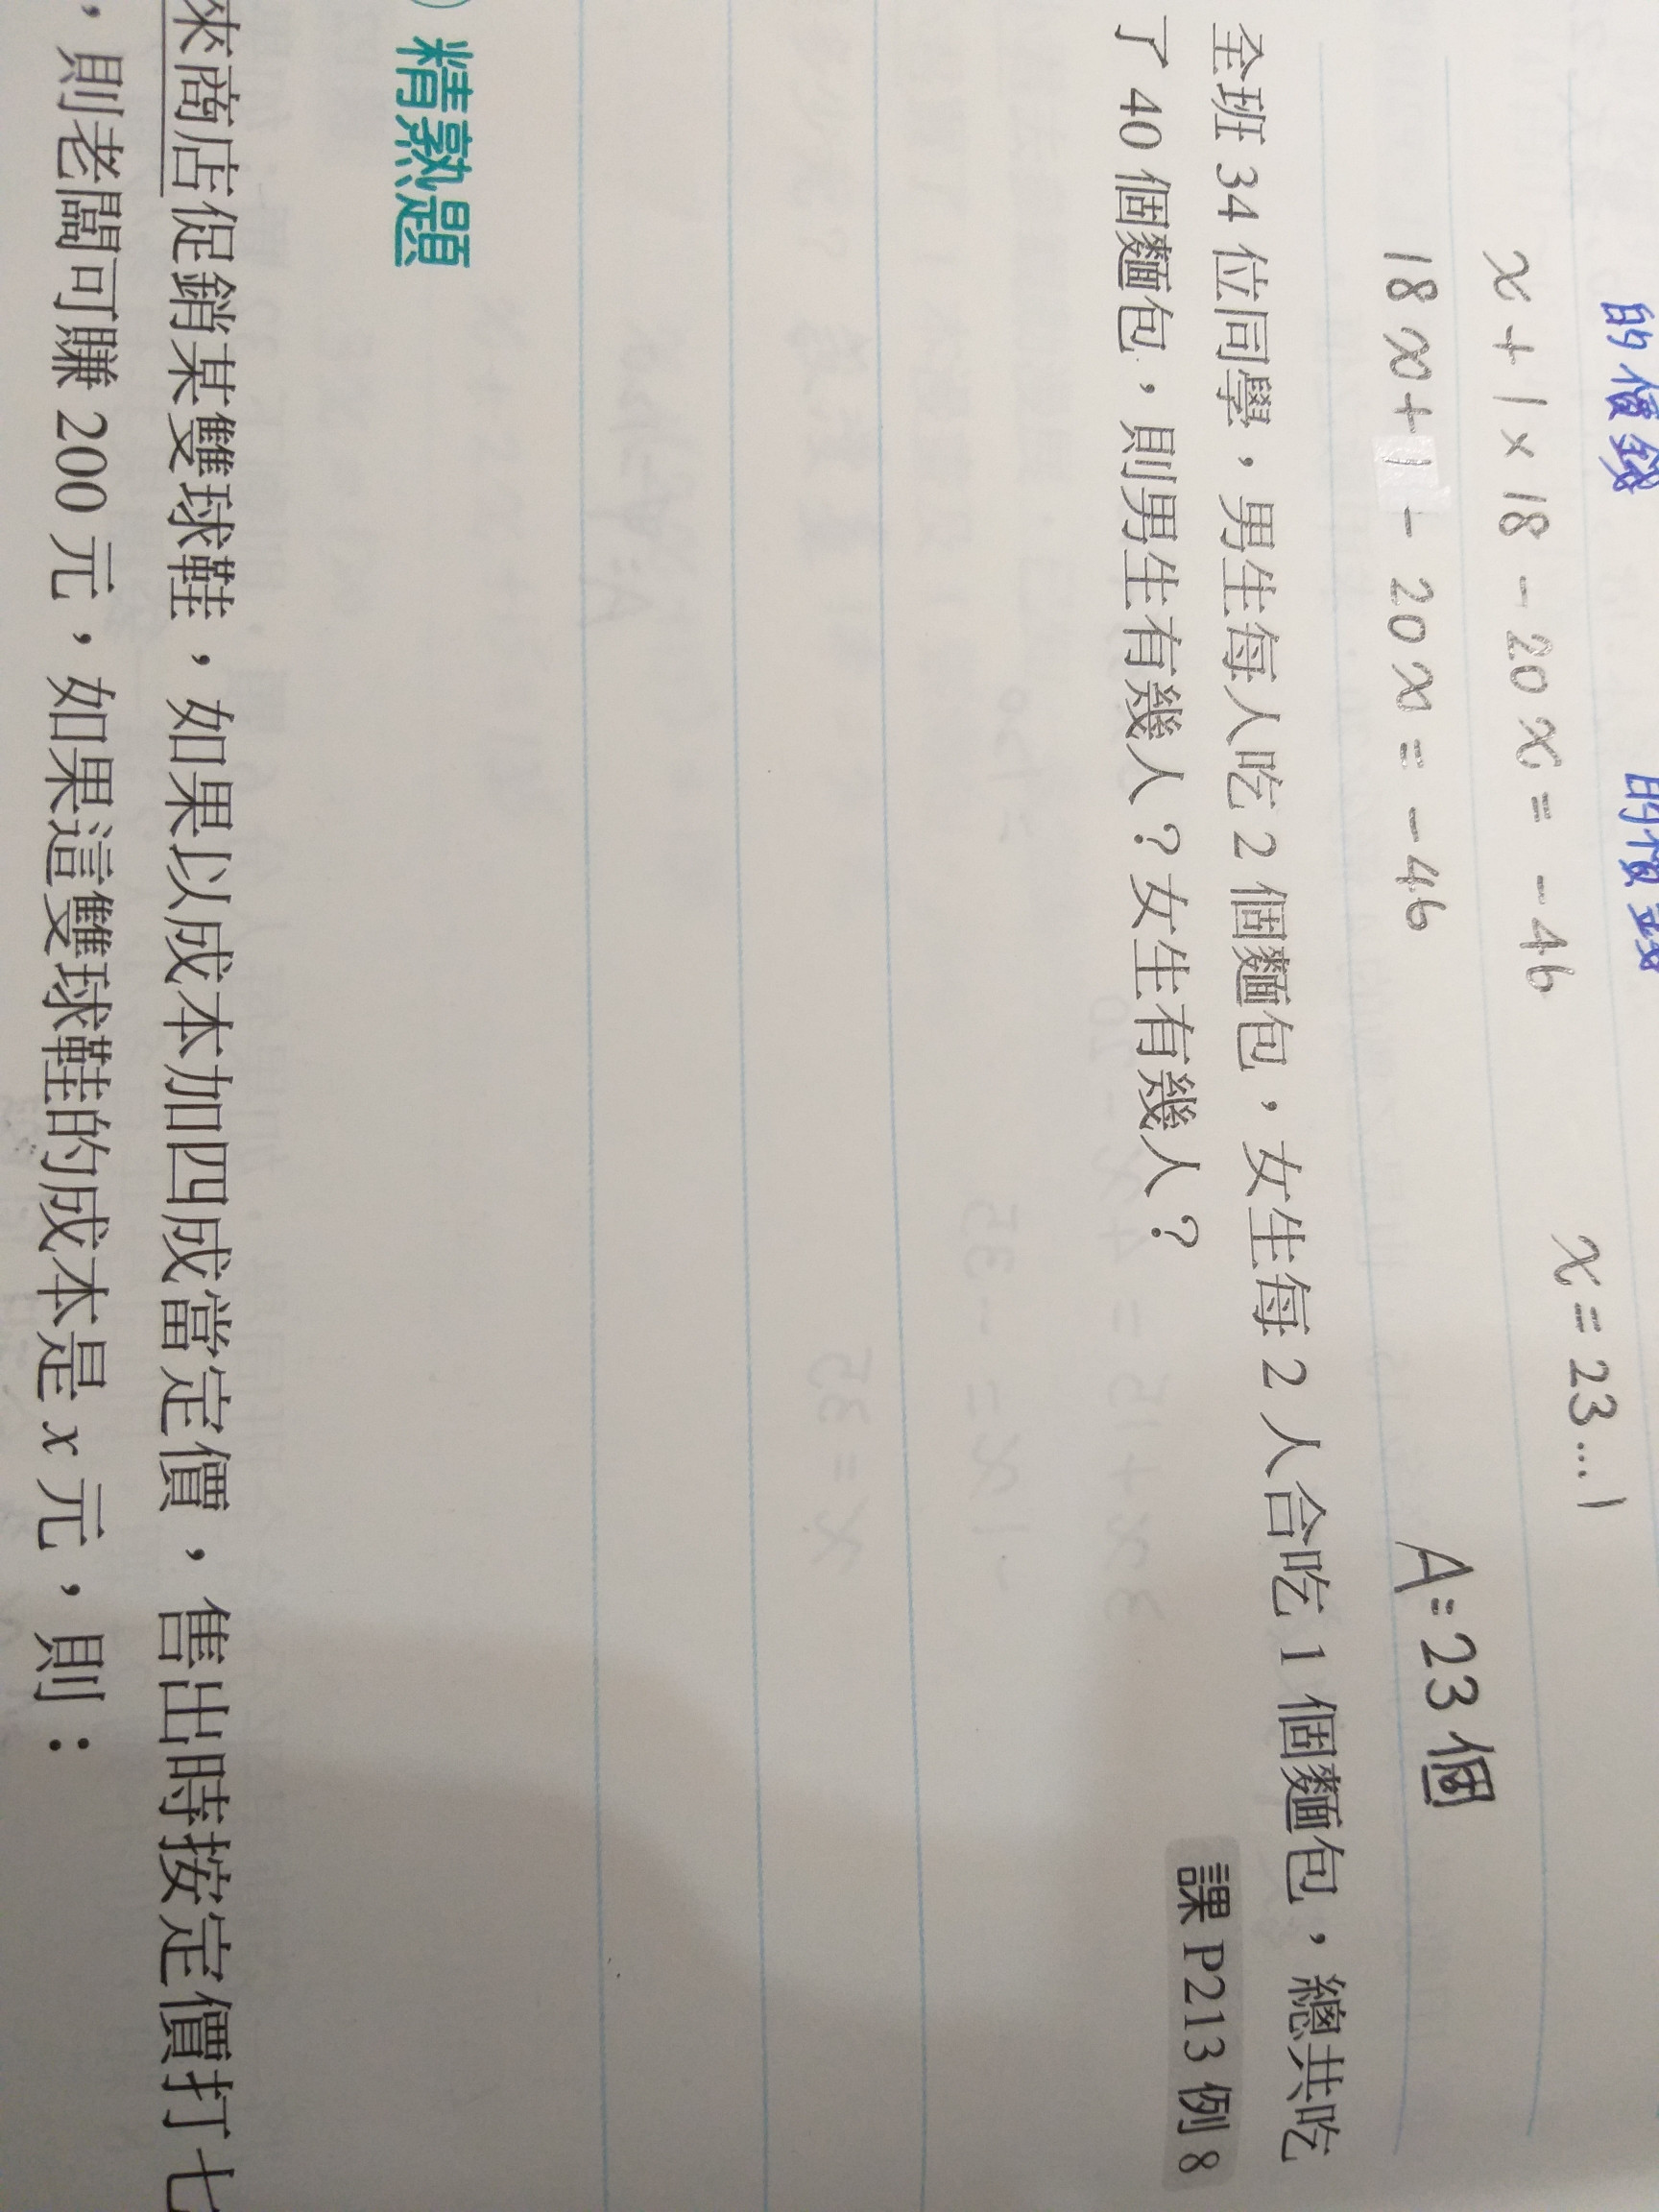 的價錢 的價錢
x = 23...1
x + 1 × 18 - 20x = -46
18x + 1 - 20x = -46 A = 23個
全班 34 位同學，男生每人吃 2 個麵包，女生每 2 人合吃 1 個麵包，總共吃
了 40 個麵包，則男生有幾人？女生有幾人？ 課 P213 例 8
精熟題
來商店促銷某雙球鞋，如果以成本加四成當定價，售出時按定價打七
，則老闆可賺 200 元，如果這雙球鞋的成本是 x 元，則：